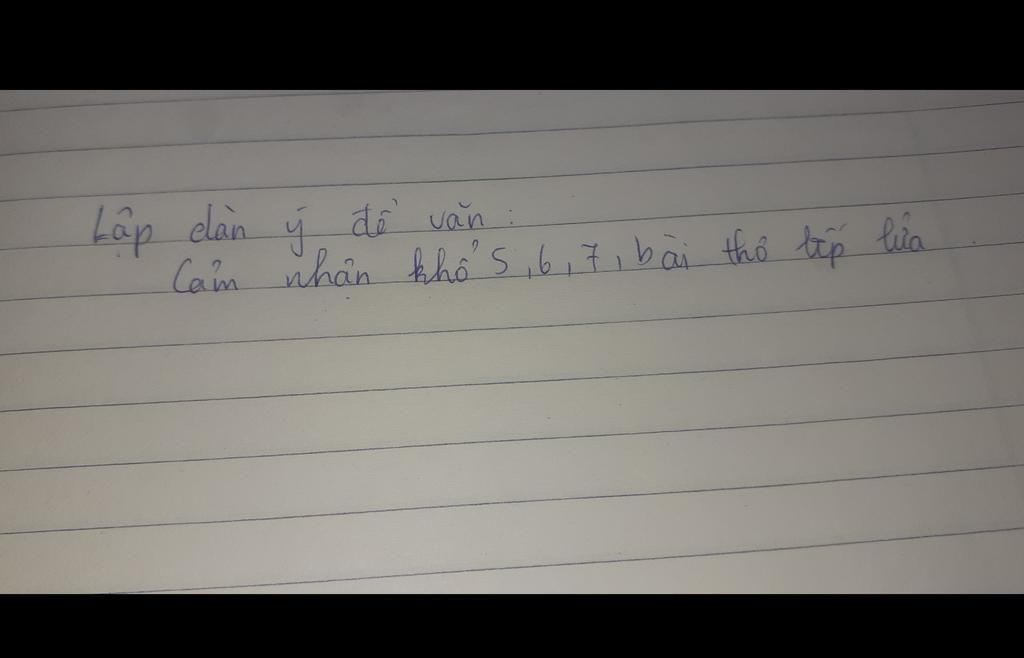 Lập dàn ý đề văn :
Cảm nhận khổ 5, 6, 7, bài thơ bếp lửa .